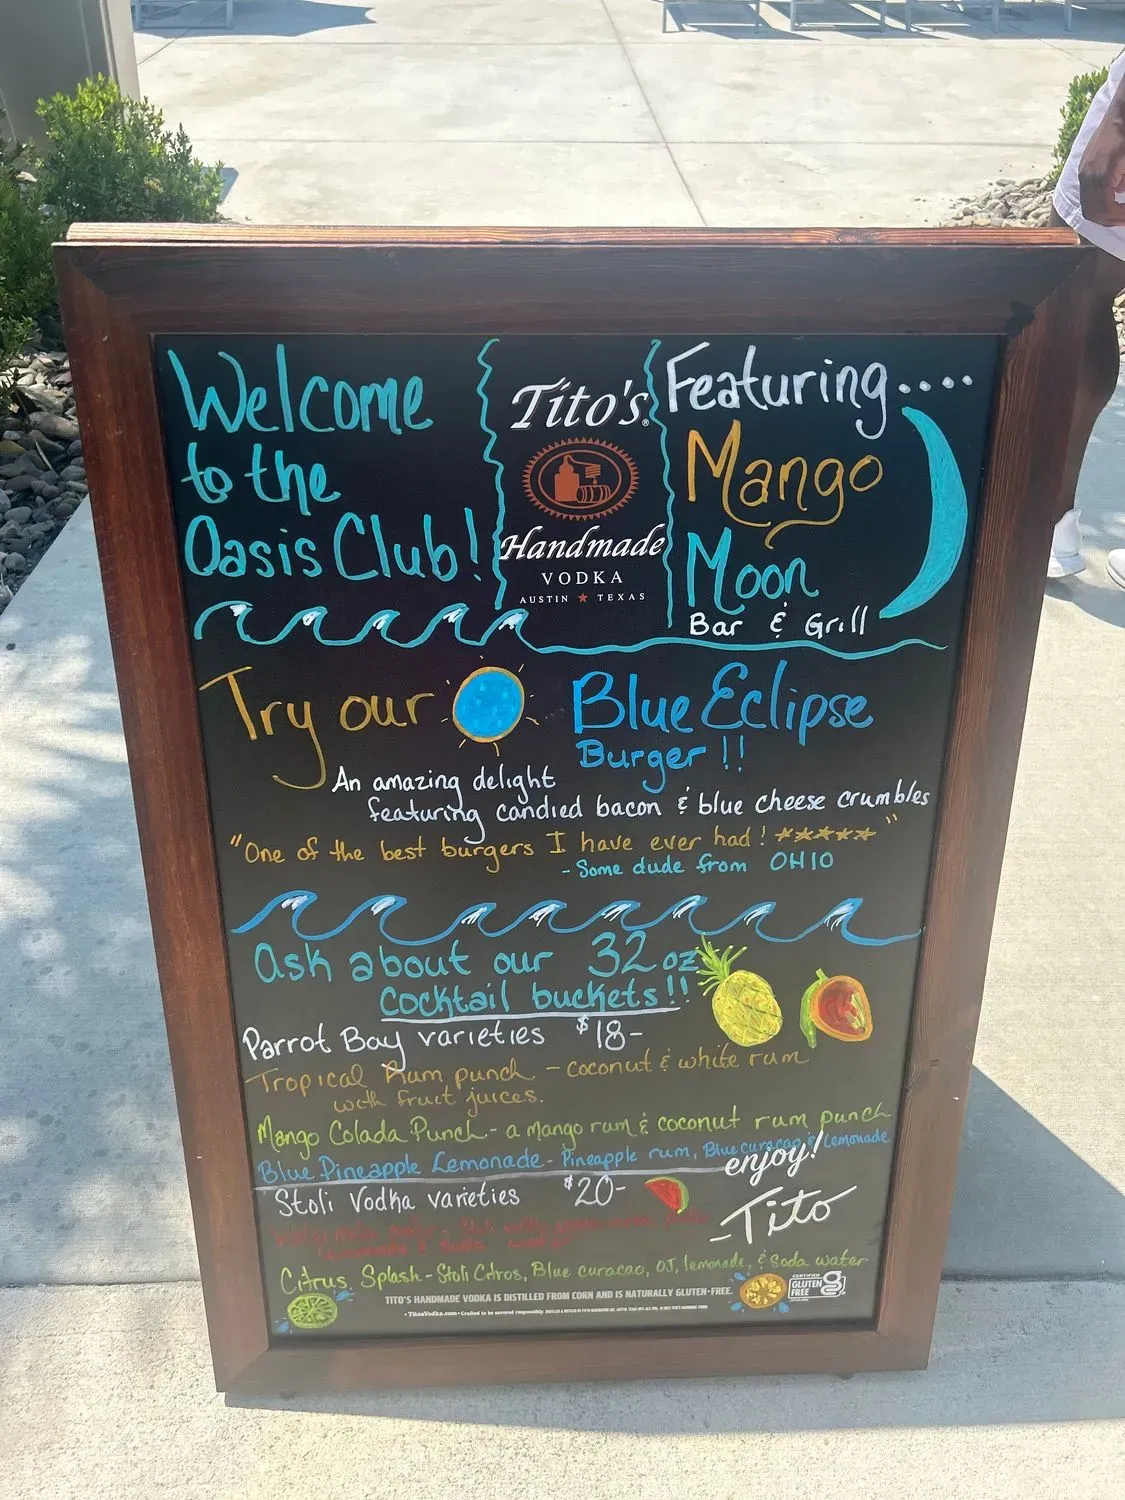 Welcome
to the
Oasis Club!
Tito's®
Handmade
VODKA
AUSTIN ★ TEXAS
Featuring....
Mango
Moon
Bar & Grill
Try our
Blue Eclipse
Burger!!
An amazing delight
featuring candied bacon & blue cheese crumbles
"One of the best burgers I have ever had! ★★★★★"
- Some dude from OHIO
Ask about our 32 oz
cocktail buckets!!
Parrot Bay varieties $18-
Tropical Rum punch - coconut & white rum
with fruit juices.
Mango Colada Punch - a mango rum & coconut rum punch
Blue Pineapple Lemonade - Pineapple rum, Blue curacao & Lemonade
enjoy!
-Tito
Stoli Vodka varieties $20-
Citrus Splash - Stoli Citros, Blue curacao, OJ, lemonade, & Soda water
TITO'S HANDMADE VODKA IS DISTILLED FROM CORN AND IS NATURALLY GLUTEN-FREE.
• TitosVodka.com • Crafted to be savored responsibly.
CERTIFIED
GLUTEN
FREE